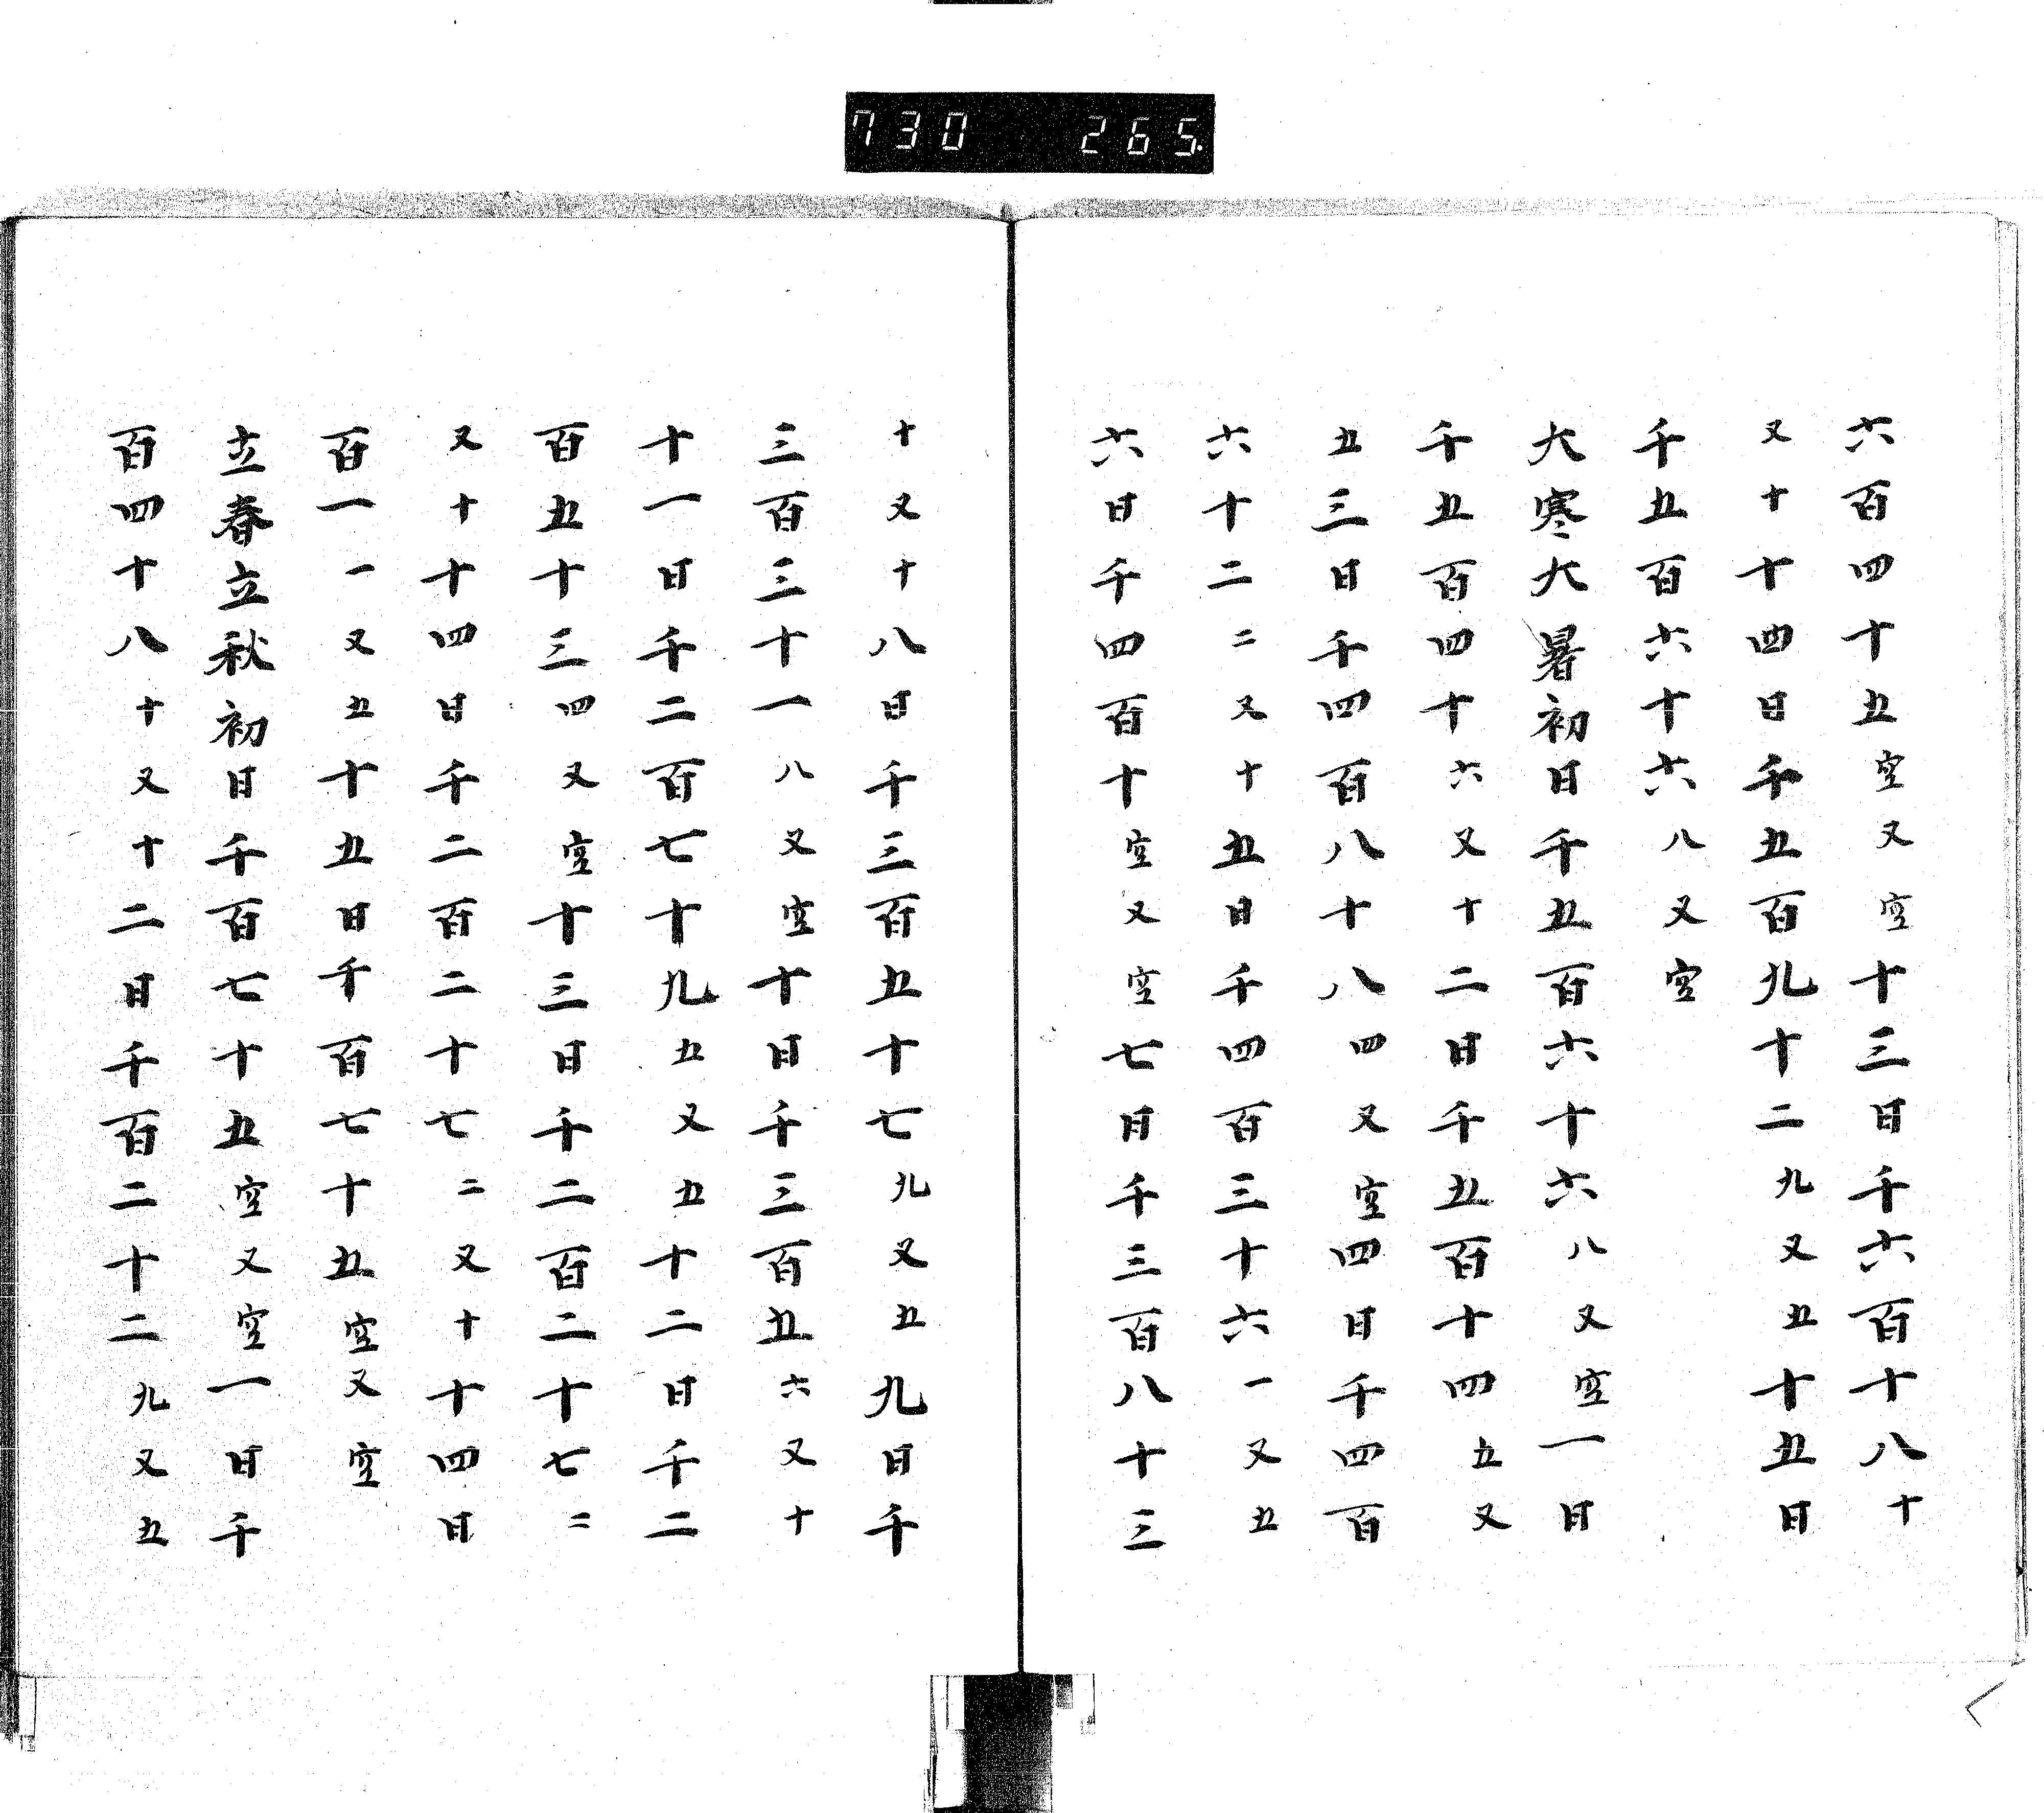 730 265.
六百四十五空又空十三日千六百十八十
又十十四日千五百九十二九又五十五日
千五百六十六八又空
大寒大暑初日千五百六十六八又空一日
千五百四十六又十二日千五百十四五又
五三日千四百八十八四又空四日千四百
六十二二又十五日千四百三十六一又五
六日千四百十空又空七日千三百八十三
十又十八日千三百五十七九又五九日千
三百三十一八又空十日千三百五六又十
十一日千二百七十九五又五十二日千二
百五十三四又空十三日千二百二十七二
又十十四日千二百二十七二又十十四日
百一一又五十五日千百七十五空又空
立春立秋初日千百七十五空又空一日千
百四十八十又十二日千百二十二九又五